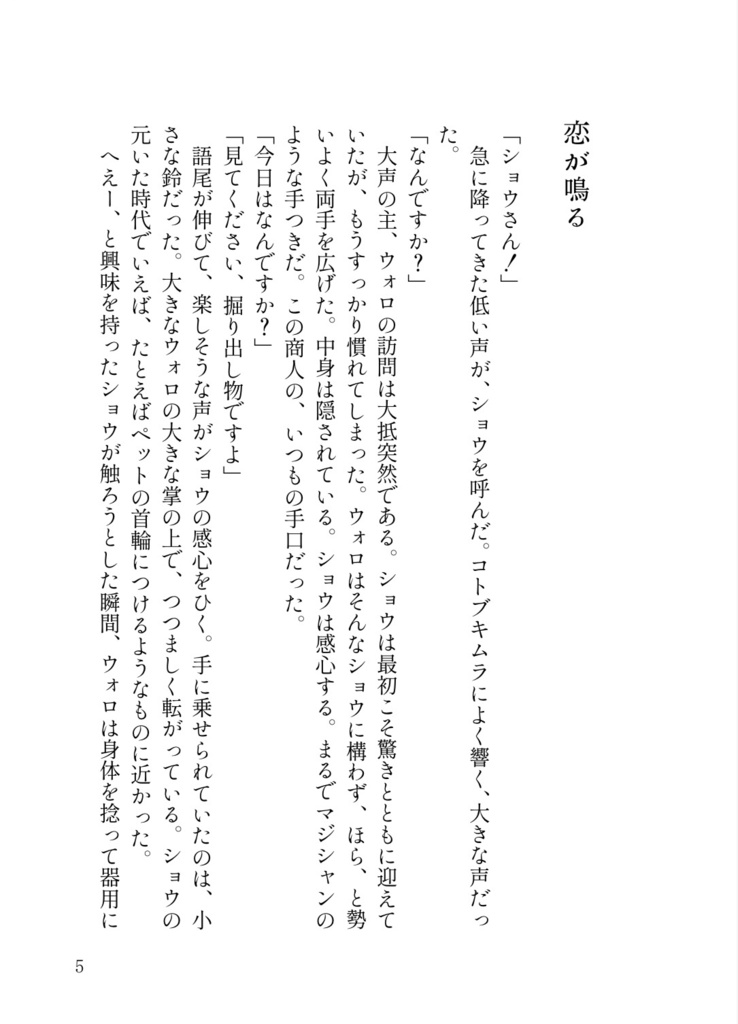 恋が鳴る
「ショウさん！」
　急に降ってきた低い声が、ショウを呼んだ。コトブキムラによく響く、大きな声だっ
た。
「なんですか？」
　大声の主、ウォロの訪問は大抵突然である。ショウは最初こそ驚きとともに迎えて
いたが、もうすっかり慣れてしまった。ウォロはそんなショウに構わず、ほら、と勢
いよく両手を広げた。中身は隠されている。ショウは感心する。まるでマジシャンの
ような手つきだ。この商人の、いつもの手口だった。
「今日はなんですか？」
「見てください、掘り出し物ですよ」
　語尾が伸びて、楽しそうな声がショウの感心をひく。手に乗せられていたのは、小
さな鈴だった。大きなウォロの大きな掌の上で、つつましく転がっている。ショウの
元いた時代でいえば、たとえばペットの首輪につけるようなものに近かった。
　へえー、と興味を持ったショウが触ろうとした瞬間、ウォロは身体を捻って器用に
5